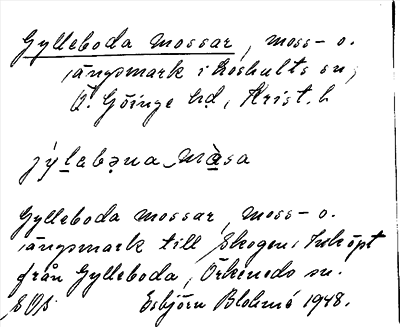 Gylleboda mossar, moss- o.
ängsmark i Loshults sn,
Ö. Göinge hd, Krist. l.
jýlebəna màsa
Gylleboda mossar, moss- o.
ängsmark till Skogen; Inköpt
från Gylleboda, Örkeneds sn.
Esbjörn Blohmé 1948.